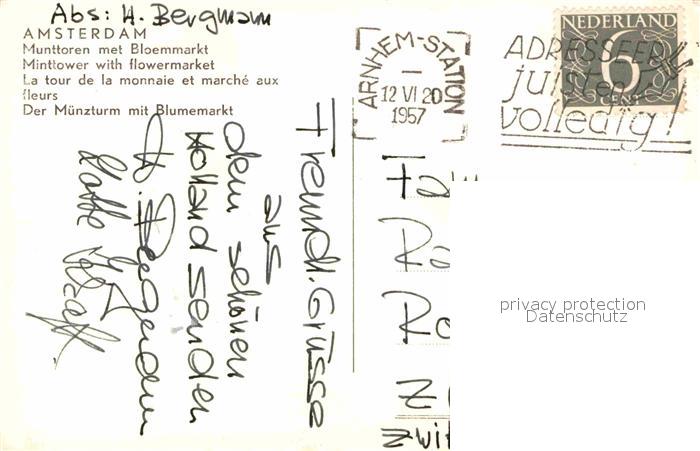 Abs: H. Bergmann
AMSTERDAM
Munttoren met Bloemmarkt
Minttower with flowermarket
La tour de la monnaie et marché aux
fleurs
Der Münzturm mit Blumemarkt
Freundl. Grüsse
aus
dem schönen
Holland senden
H. Bergmann
ARNHEM-STATION
12 VI 20
1957
NEDERLAND
6
CENT
ADRESSEER
juist en
volledig!
privacy protection
Datenschutz